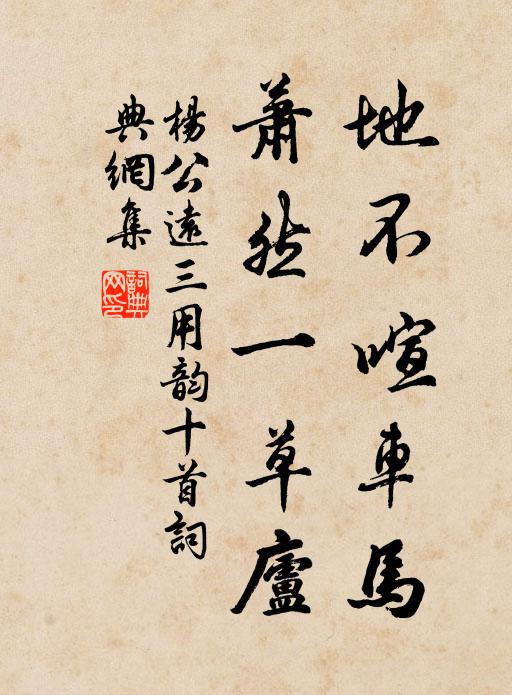 地不喧車馬
蕭然一草廬
楊公遠三用韵十首詞
典網集
詞典
网印